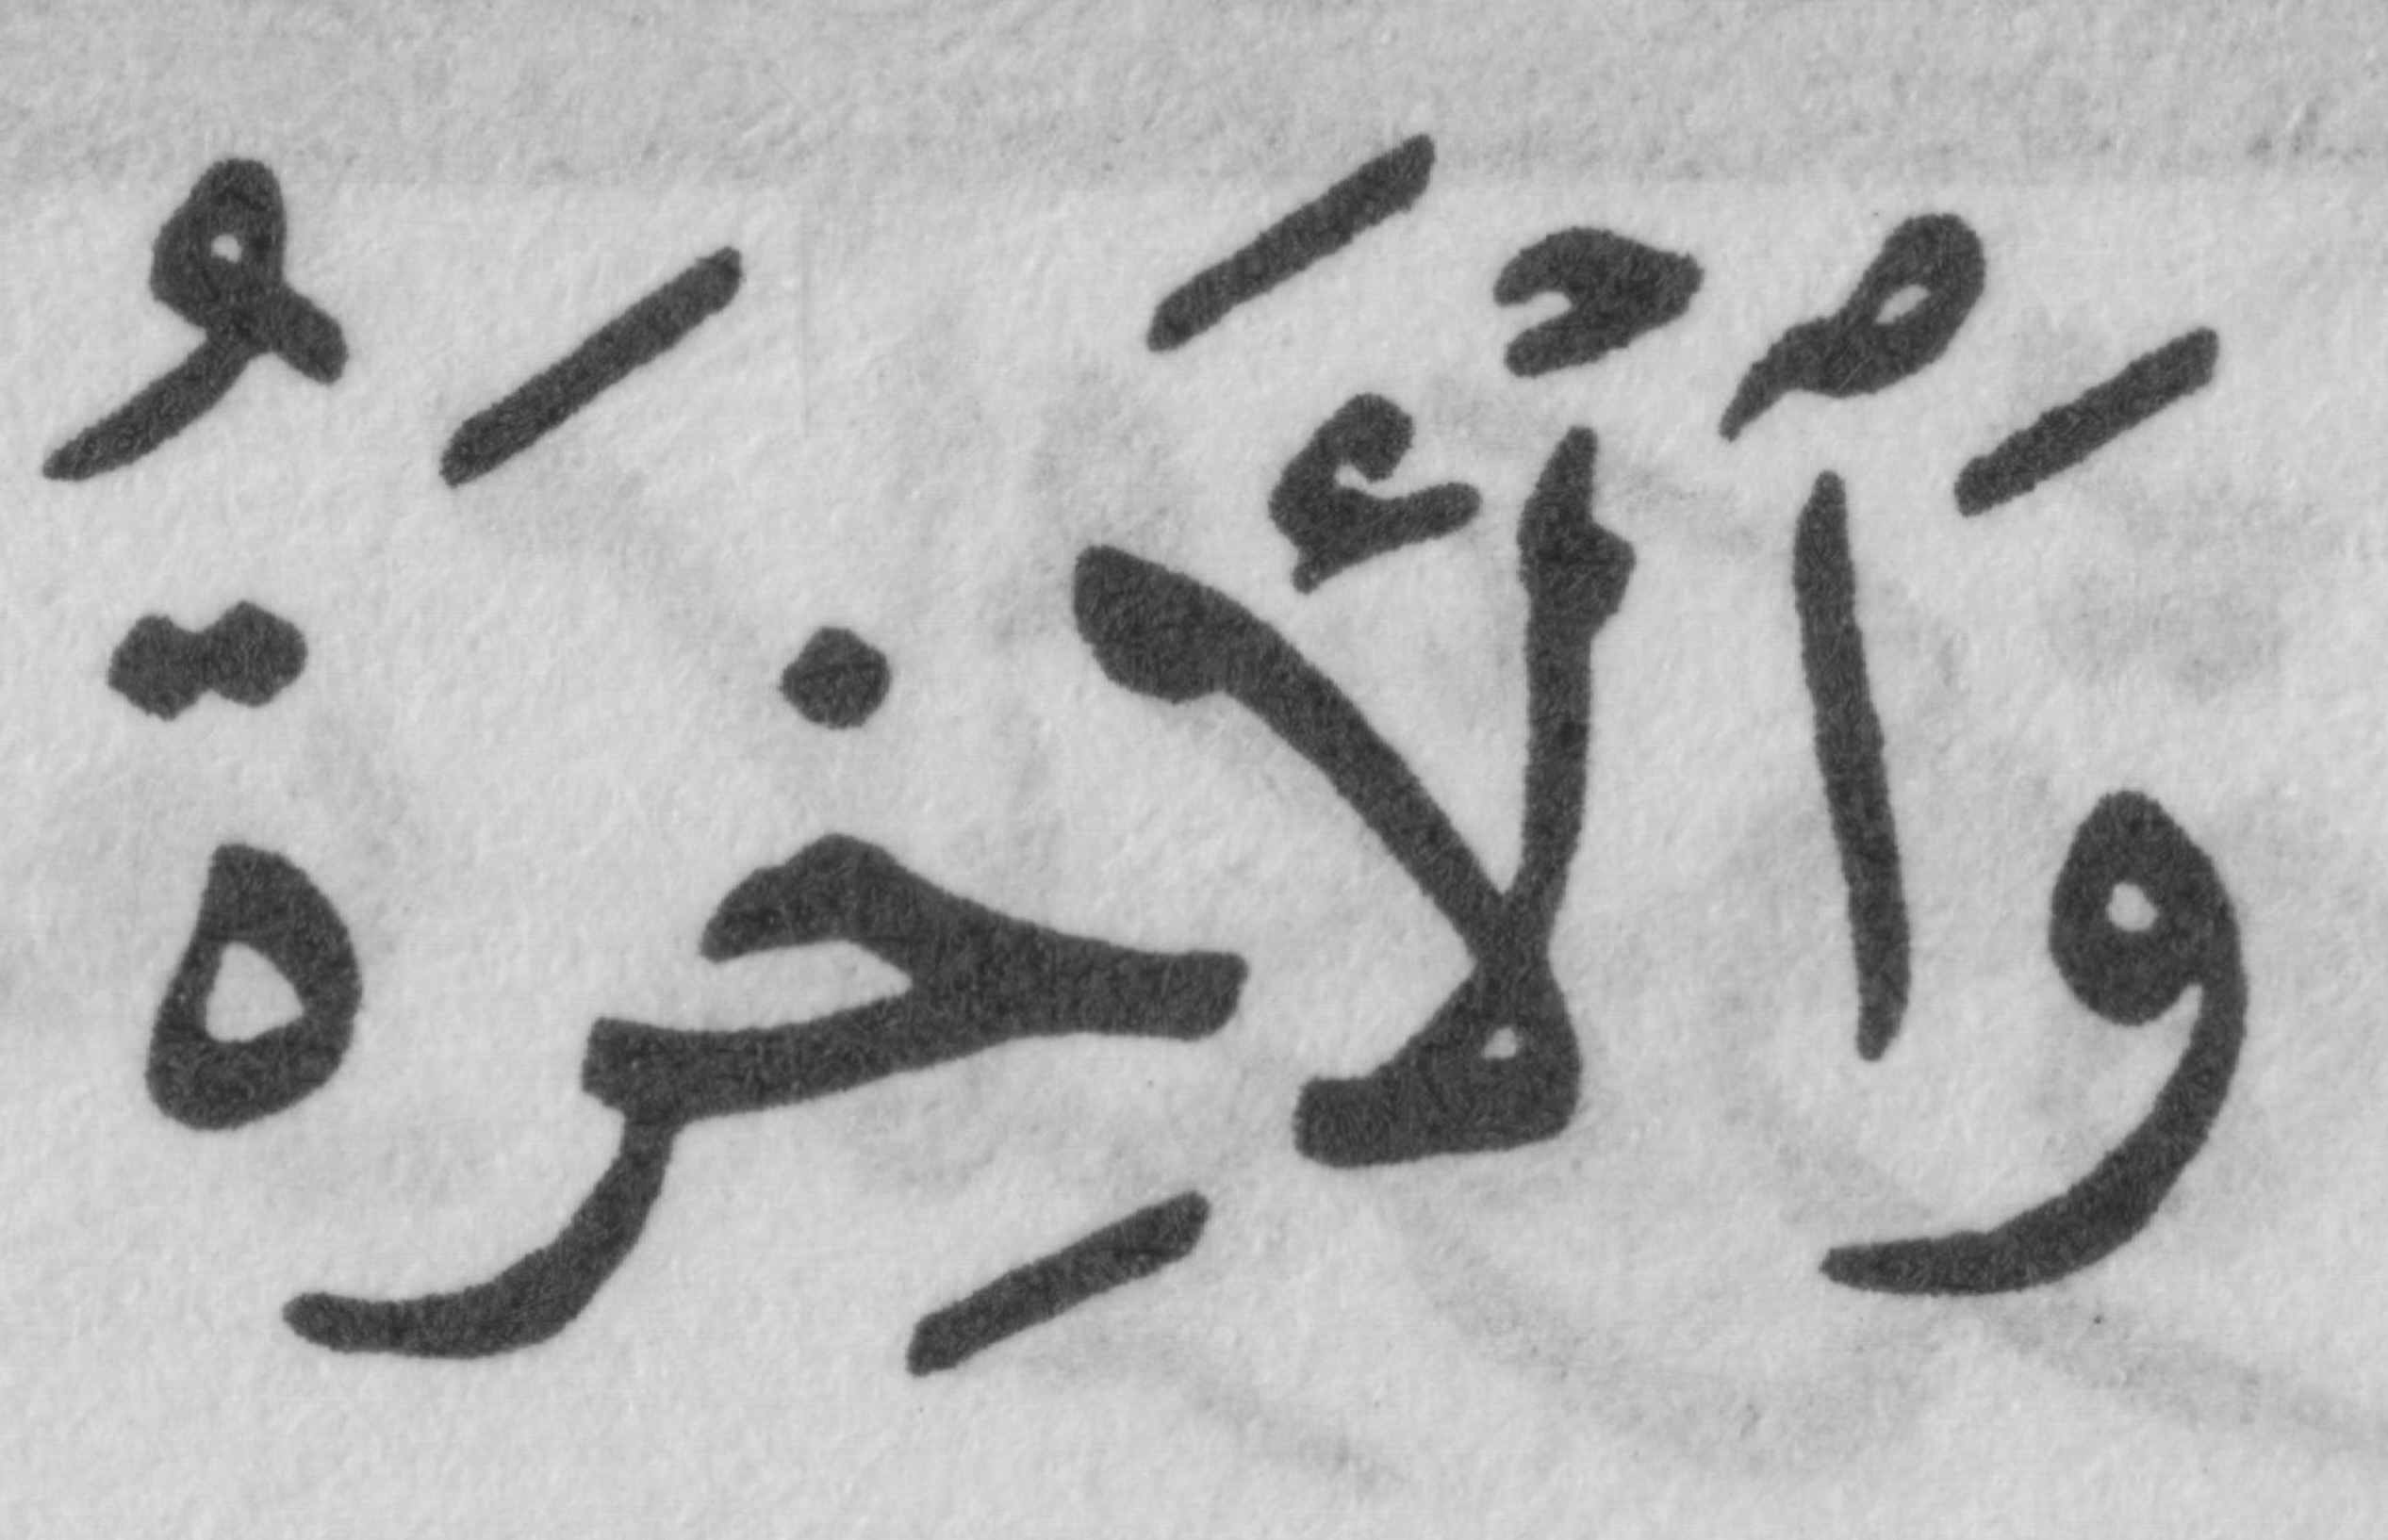 وَٱلۡأَخِرَةُ